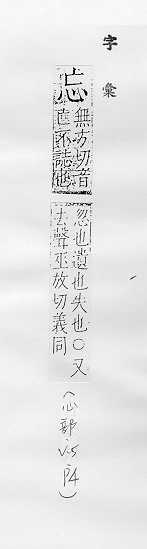 字彙
忘
無方切音
不誌也
忽也遺也失也○又
去聲巫放切義同
(心部 P4)